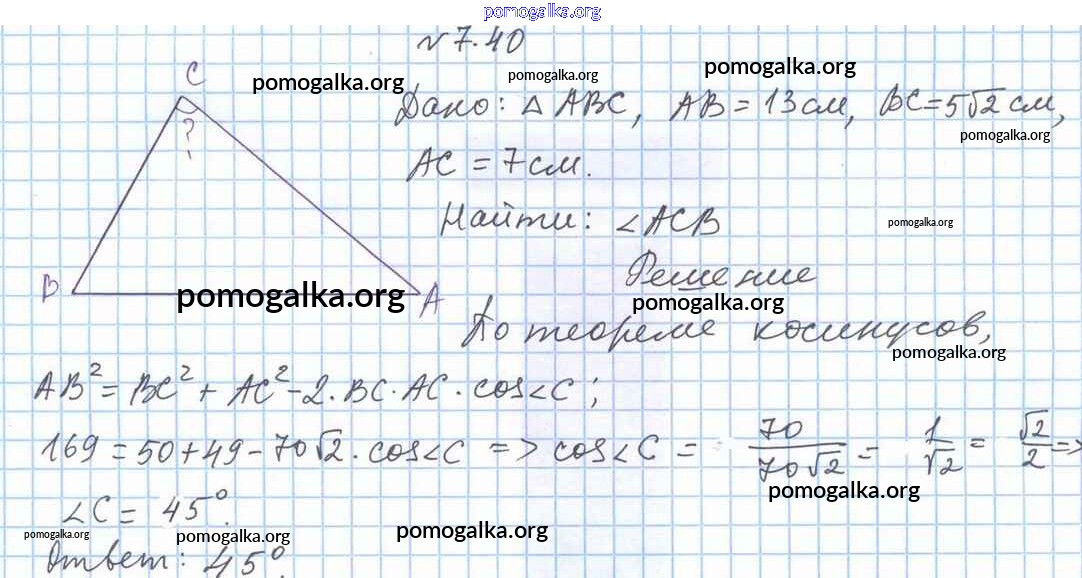 pomogalka.org
N 7.40
C
pomogalka.org pomogalka.org pomogalka.org
Дано: △ ABC, AB = 13 см, BC = 5√2 см,
?
pomogalka.org
AC = 7 см.
Найти: ∠ACB
pomogalka.org
Решение
B A
pomogalka.org pomogalka.org
По теореме косинусов,
pomogalka.org
AB² = BC² + AC² - 2 · BC · AC · cos∠C ;
169 = 50 + 49 - 70√2 · cos∠C => cos∠C = - 70/70√2 = 1/√2 = √2/2 =>
pomogalka.org
∠C = 45°.
pomogalka.org pomogalka.org pomogalka.org
Ответ: 45°.